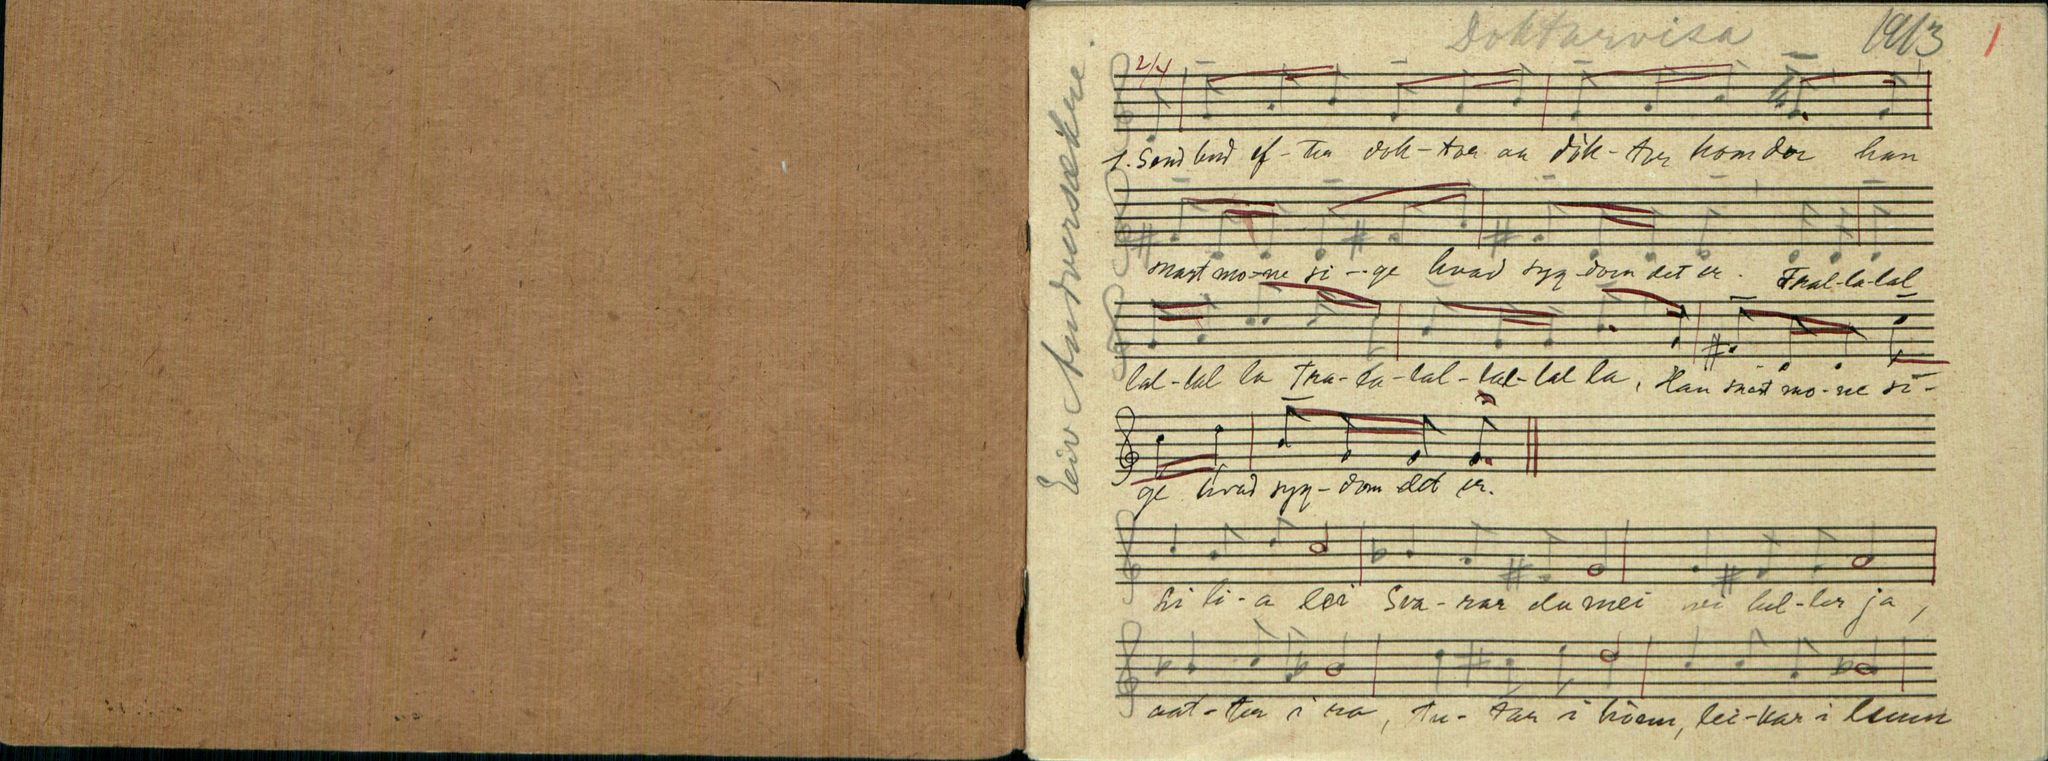 Doktarvisa 1913 1
Eeiv Andversækre.
2/4
1. Send bud ef-ter dok-tor aa dok-tor kom der han
snart mo-ne si-ge hvad syg-dom det er. Tral-la-lal
lal-lal la Tra-la-lal-lal-lal la, Han snart mo-ne si-
ge hvad syg-dom det er.
li-a lei Sva-rar du mei nei hel-ler ja,
i ro, tu-tar i horn, lei-kar i